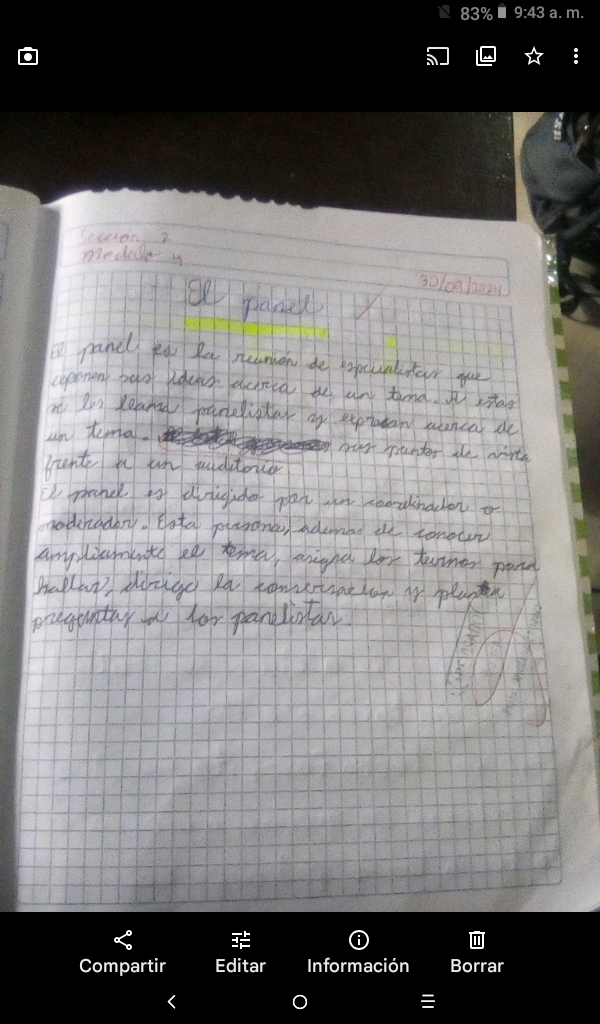 83% 9:43 a. m.
Sección 2
Modulo 4
30/09/2024
El panel
El panel es la reunión de especialistas que
exponen sus ideas acerca de un tema. A estas
se les llama panelistas y expresan acerca de
un tema. sus puntos de vista
frente a un auditorio
El panel es dirigido por un coordinador o
moderador. Esta persona, ademas de conocer
ampliamente el tema, asigna los turnos para
hablar, dirige la conversacion y plantea
preguntas a los panelistas.
Compartir Editar Información Borrar